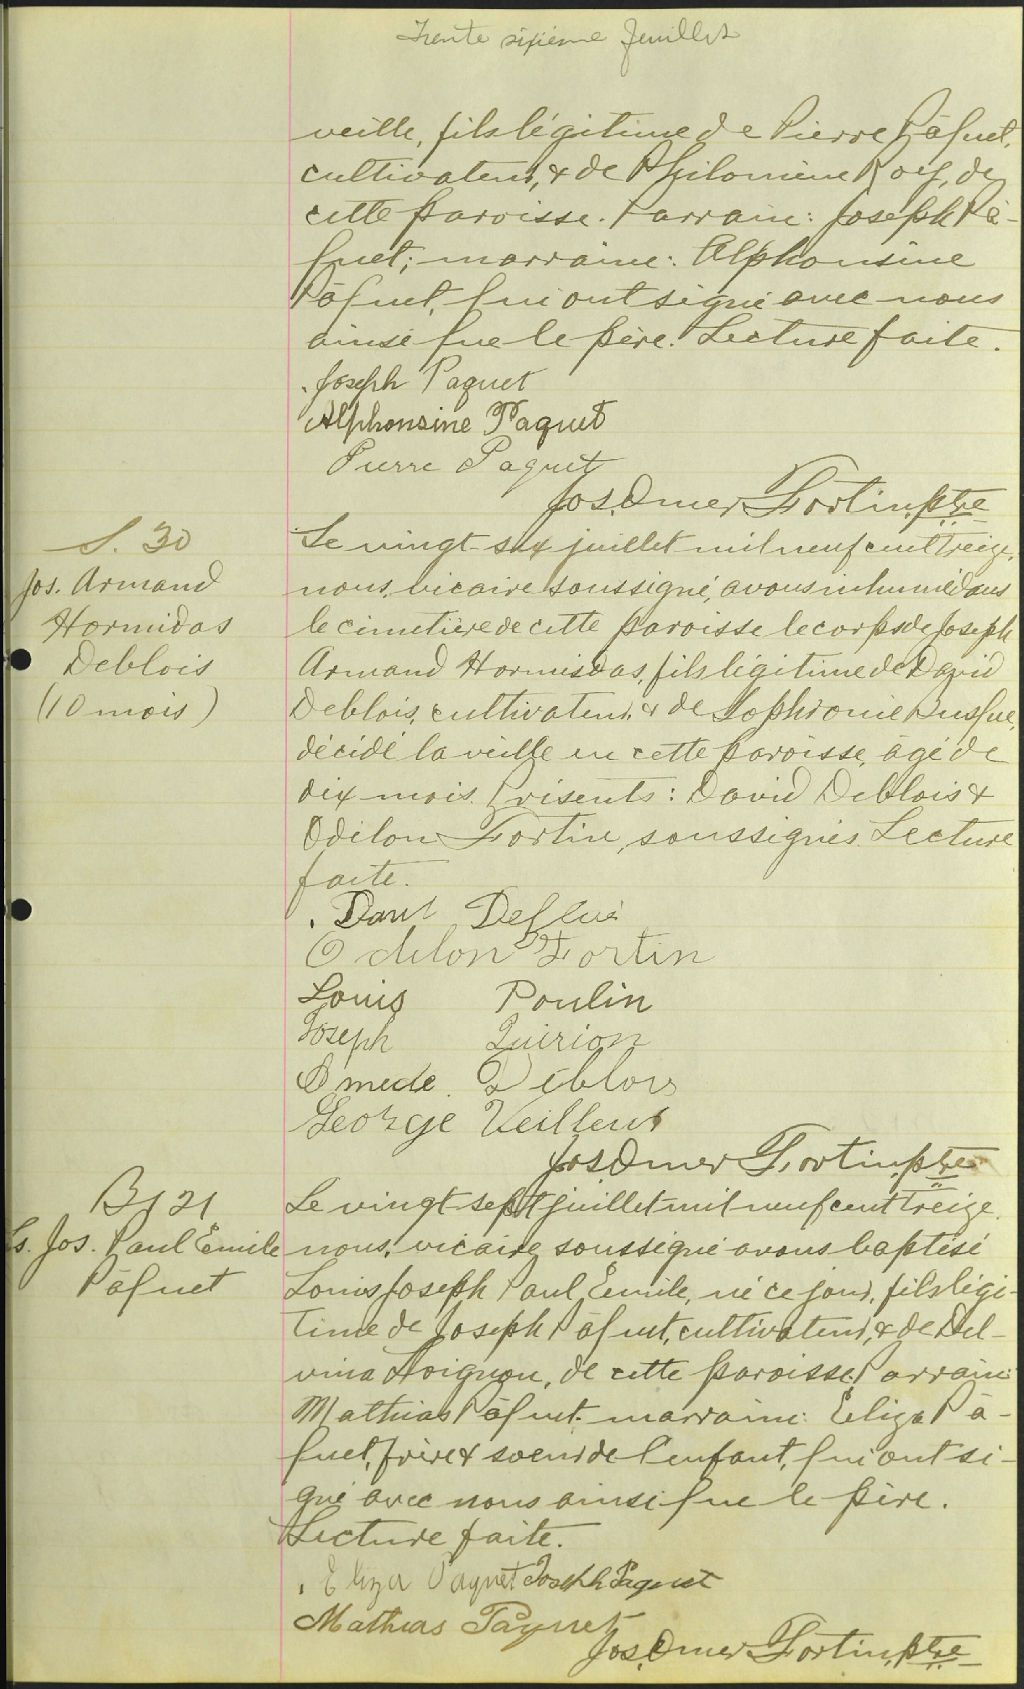 Trente sixième feuillet
veille, fils légitime de Pierre Pâquet,
cultivateur, & de Philomène Roy, de
cette paroisse. Parrain: Joseph Pâ-
quet; marraine: Alphonsine
Pâquet, qui ont signé avec nous
ainsi que le père. Lecture faite.
Joseph Paquet
Alphonsine Paquet
Pierre Paquet
Jos. Omer Fortin, ptre
S. 30
Jos. Armand
Hormidas
Deblois
(10 mois)
Le vingt-six juillet mil neuf cent treize,
nous, vicaire soussigné, avons inhumé dans
le cimetière de cette paroisse le corps de Joseph
Armand Hormisdas, fils légitime de David
Deblois, cultivateur, & de Sophronie Busque,
décédé la veille en cette paroisse, âgé de
dix mois. Présents: David Deblois &
Odilon Fortin, soussignés. Lecture
faite.
Odilon Fortin
Louis Poulin
Joseph Quirion
Omede Deblois
George Veilleux
Jos. Omer Fortin, ptre
B. 121
Ls. Jos. Paul Emile
Pâquet
Le vingt-sept juillet mil neuf cent treize,
nous, vicaire soussigné avons baptisé
Louis Joseph Paul Emile, né ce jour, fils légi-
time de Joseph Pâquet, cultivateur, & de Del-
vina Loignon, de cette paroisse. Parrain:
Mathias Pâquet; marraine: Eliza Pâ-
quet, frère & soeur de l'enfant, qui ont si-
gné avec nous ainsi que le père.
Lecture faite.
Eliza Paquet Joseph Paquet
Mathias Paquet
Jos. Omer Fortin, ptre